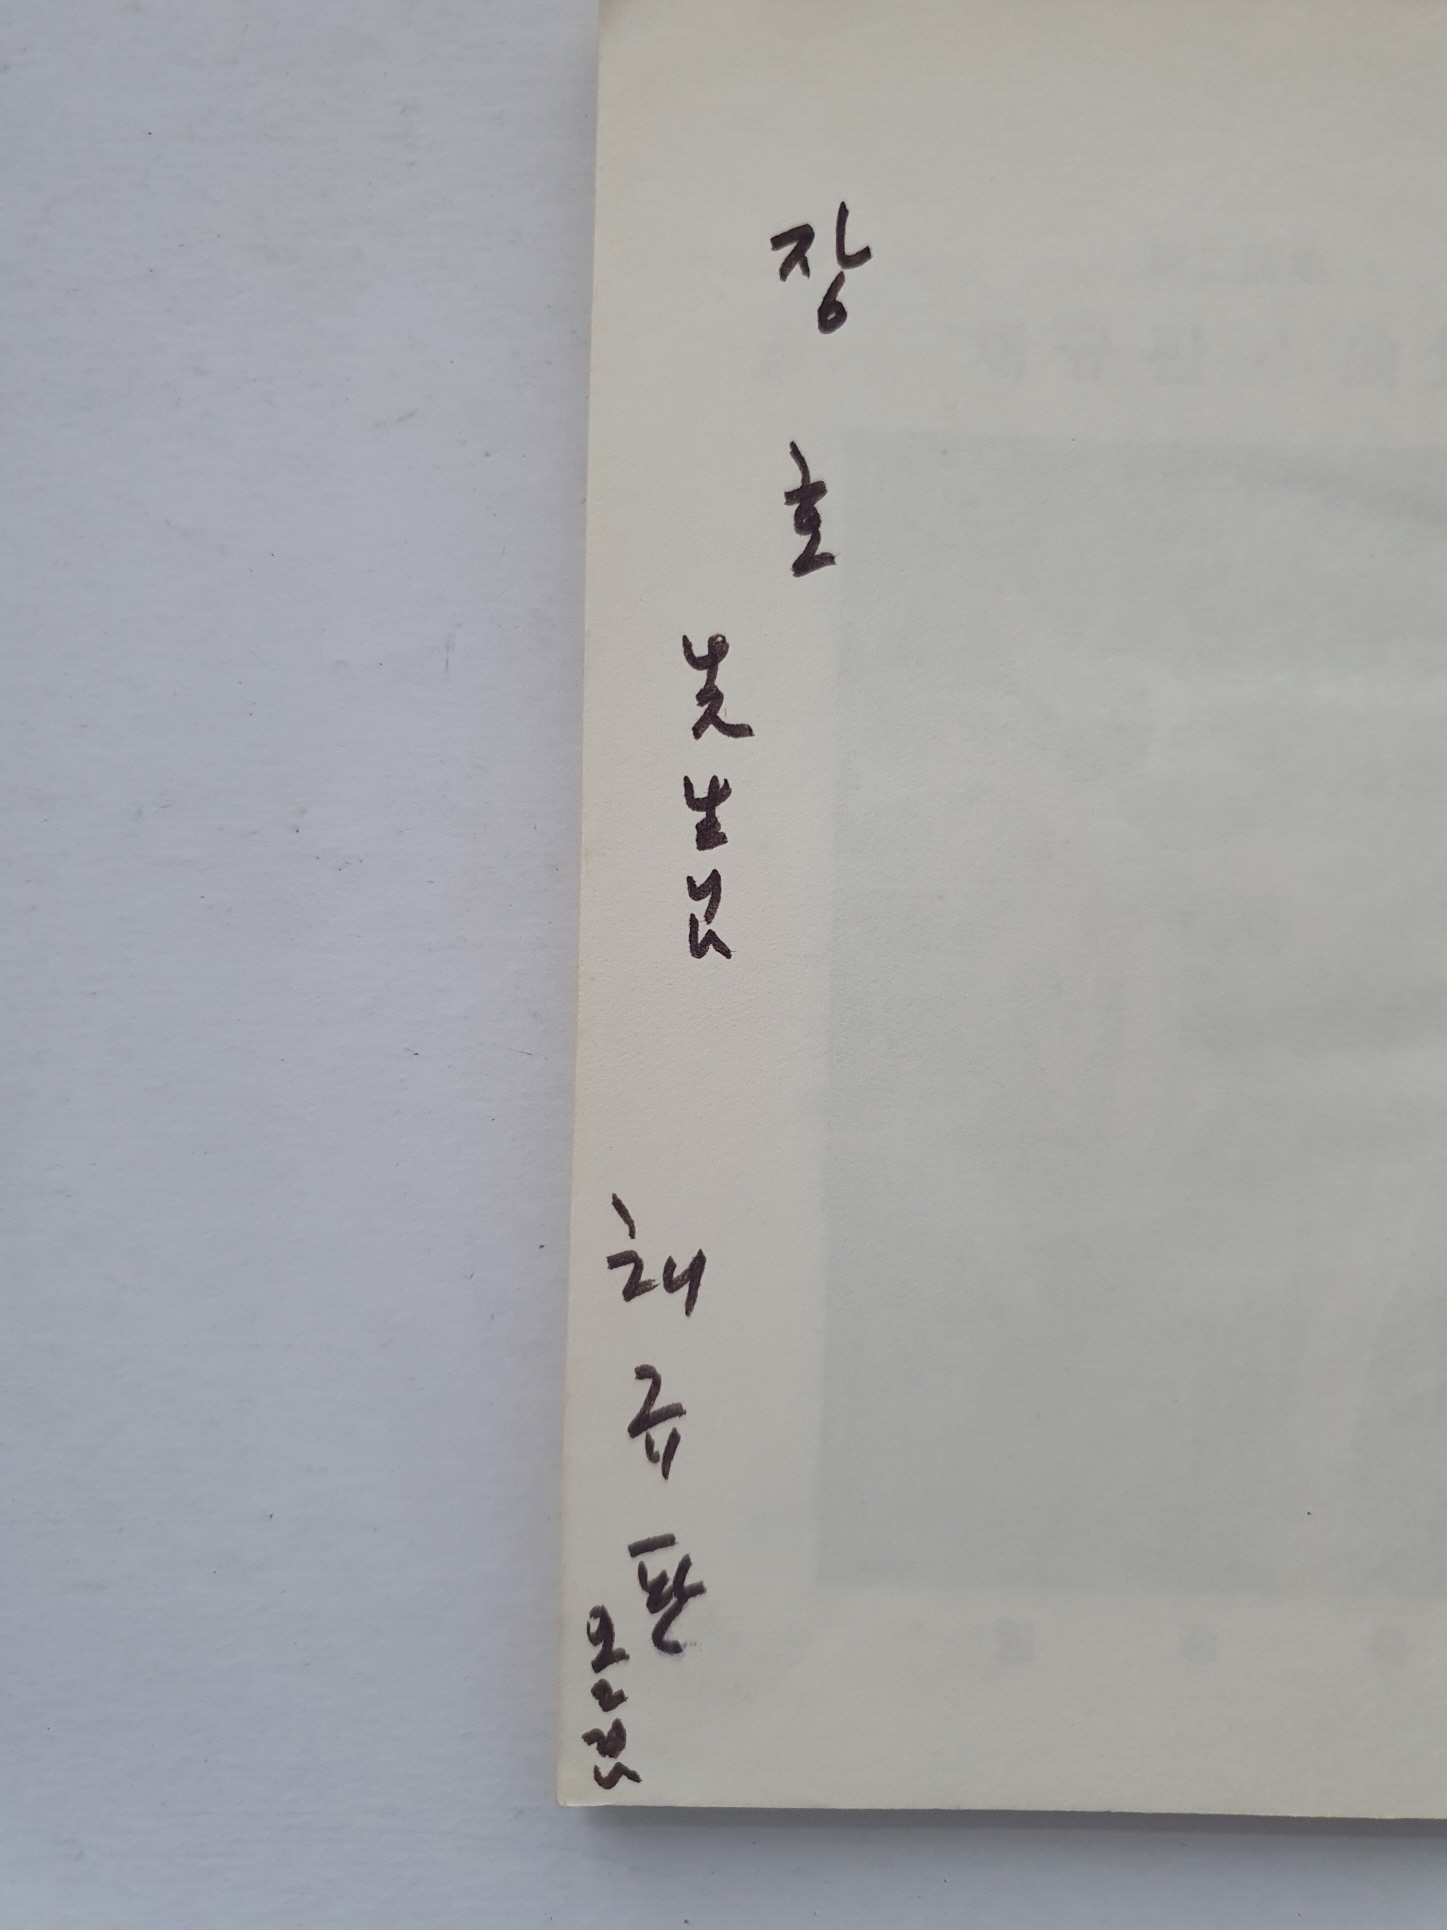 장호
先生님
채규판
올림